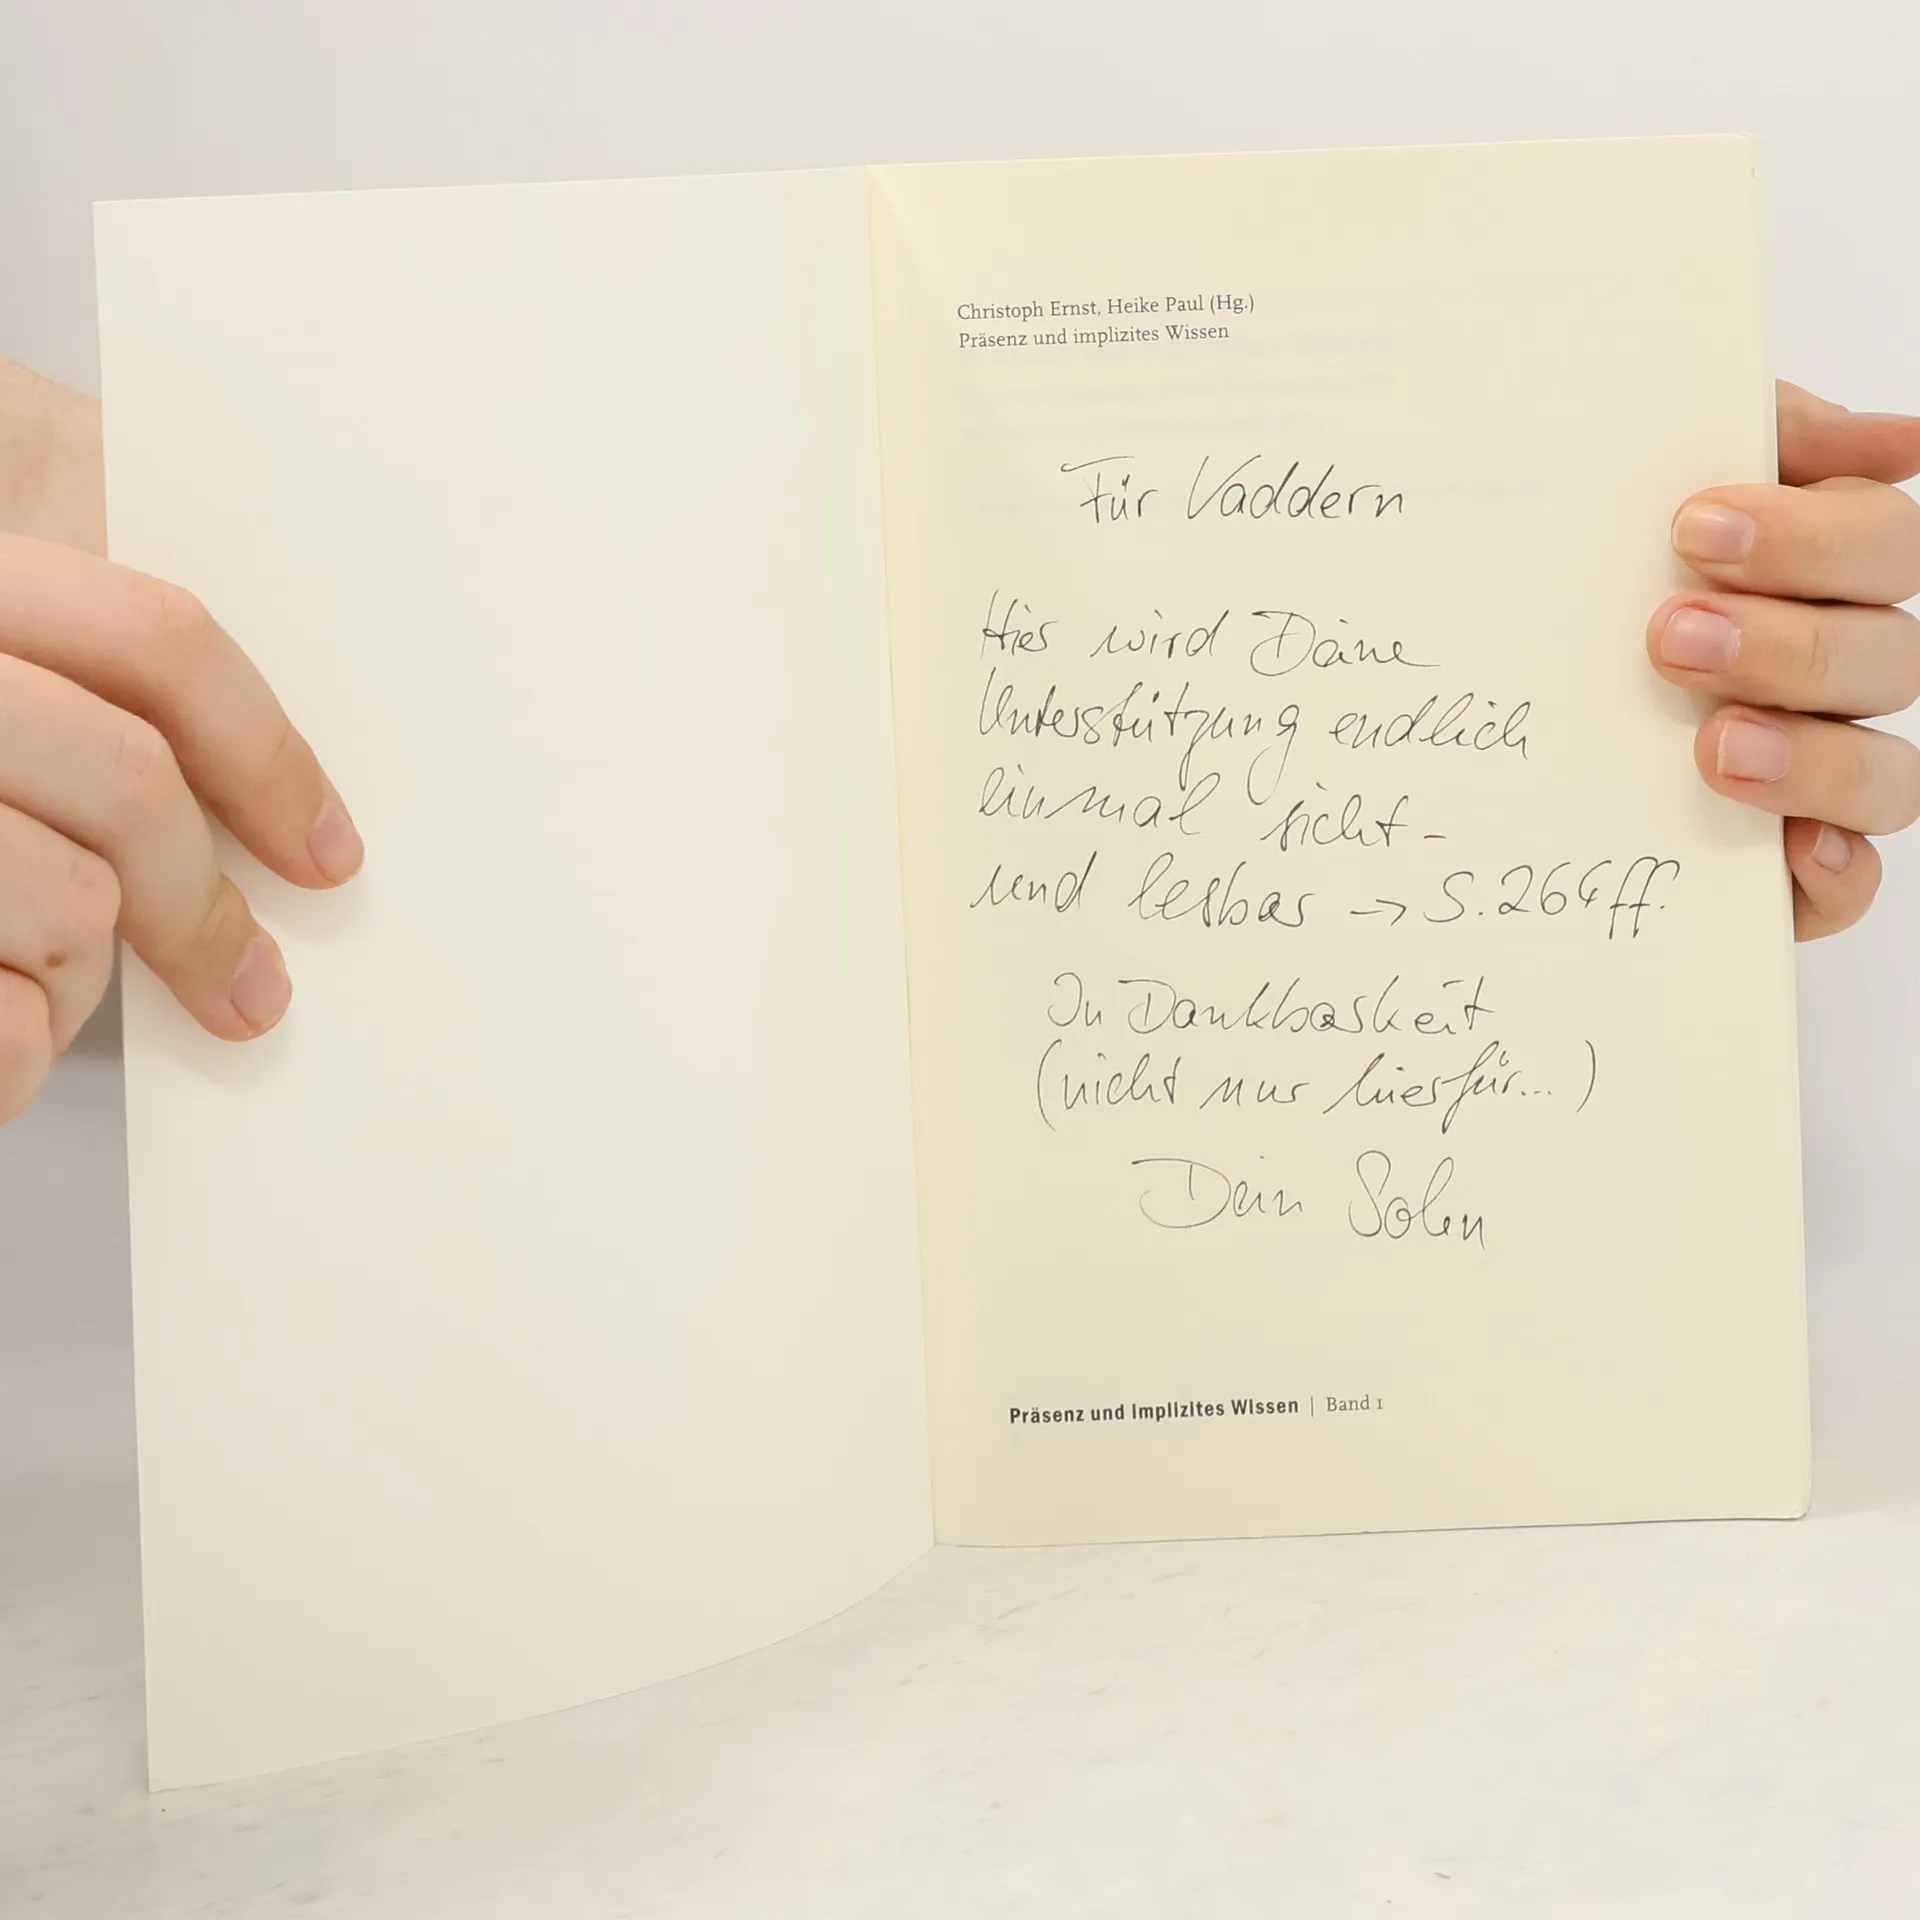 Christoph Ernst, Heike Paul (Hg.)
Präsenz und implizites Wissen
Für Vaddern
Hier wird Deine
Unterstützung endlich
einmal sicht-
und lesbar → S. 264 ff.
In Dankbarkeit
(nicht nur hierfür...)
Dein Sohn
Präsenz und implizites Wissen | Band 1